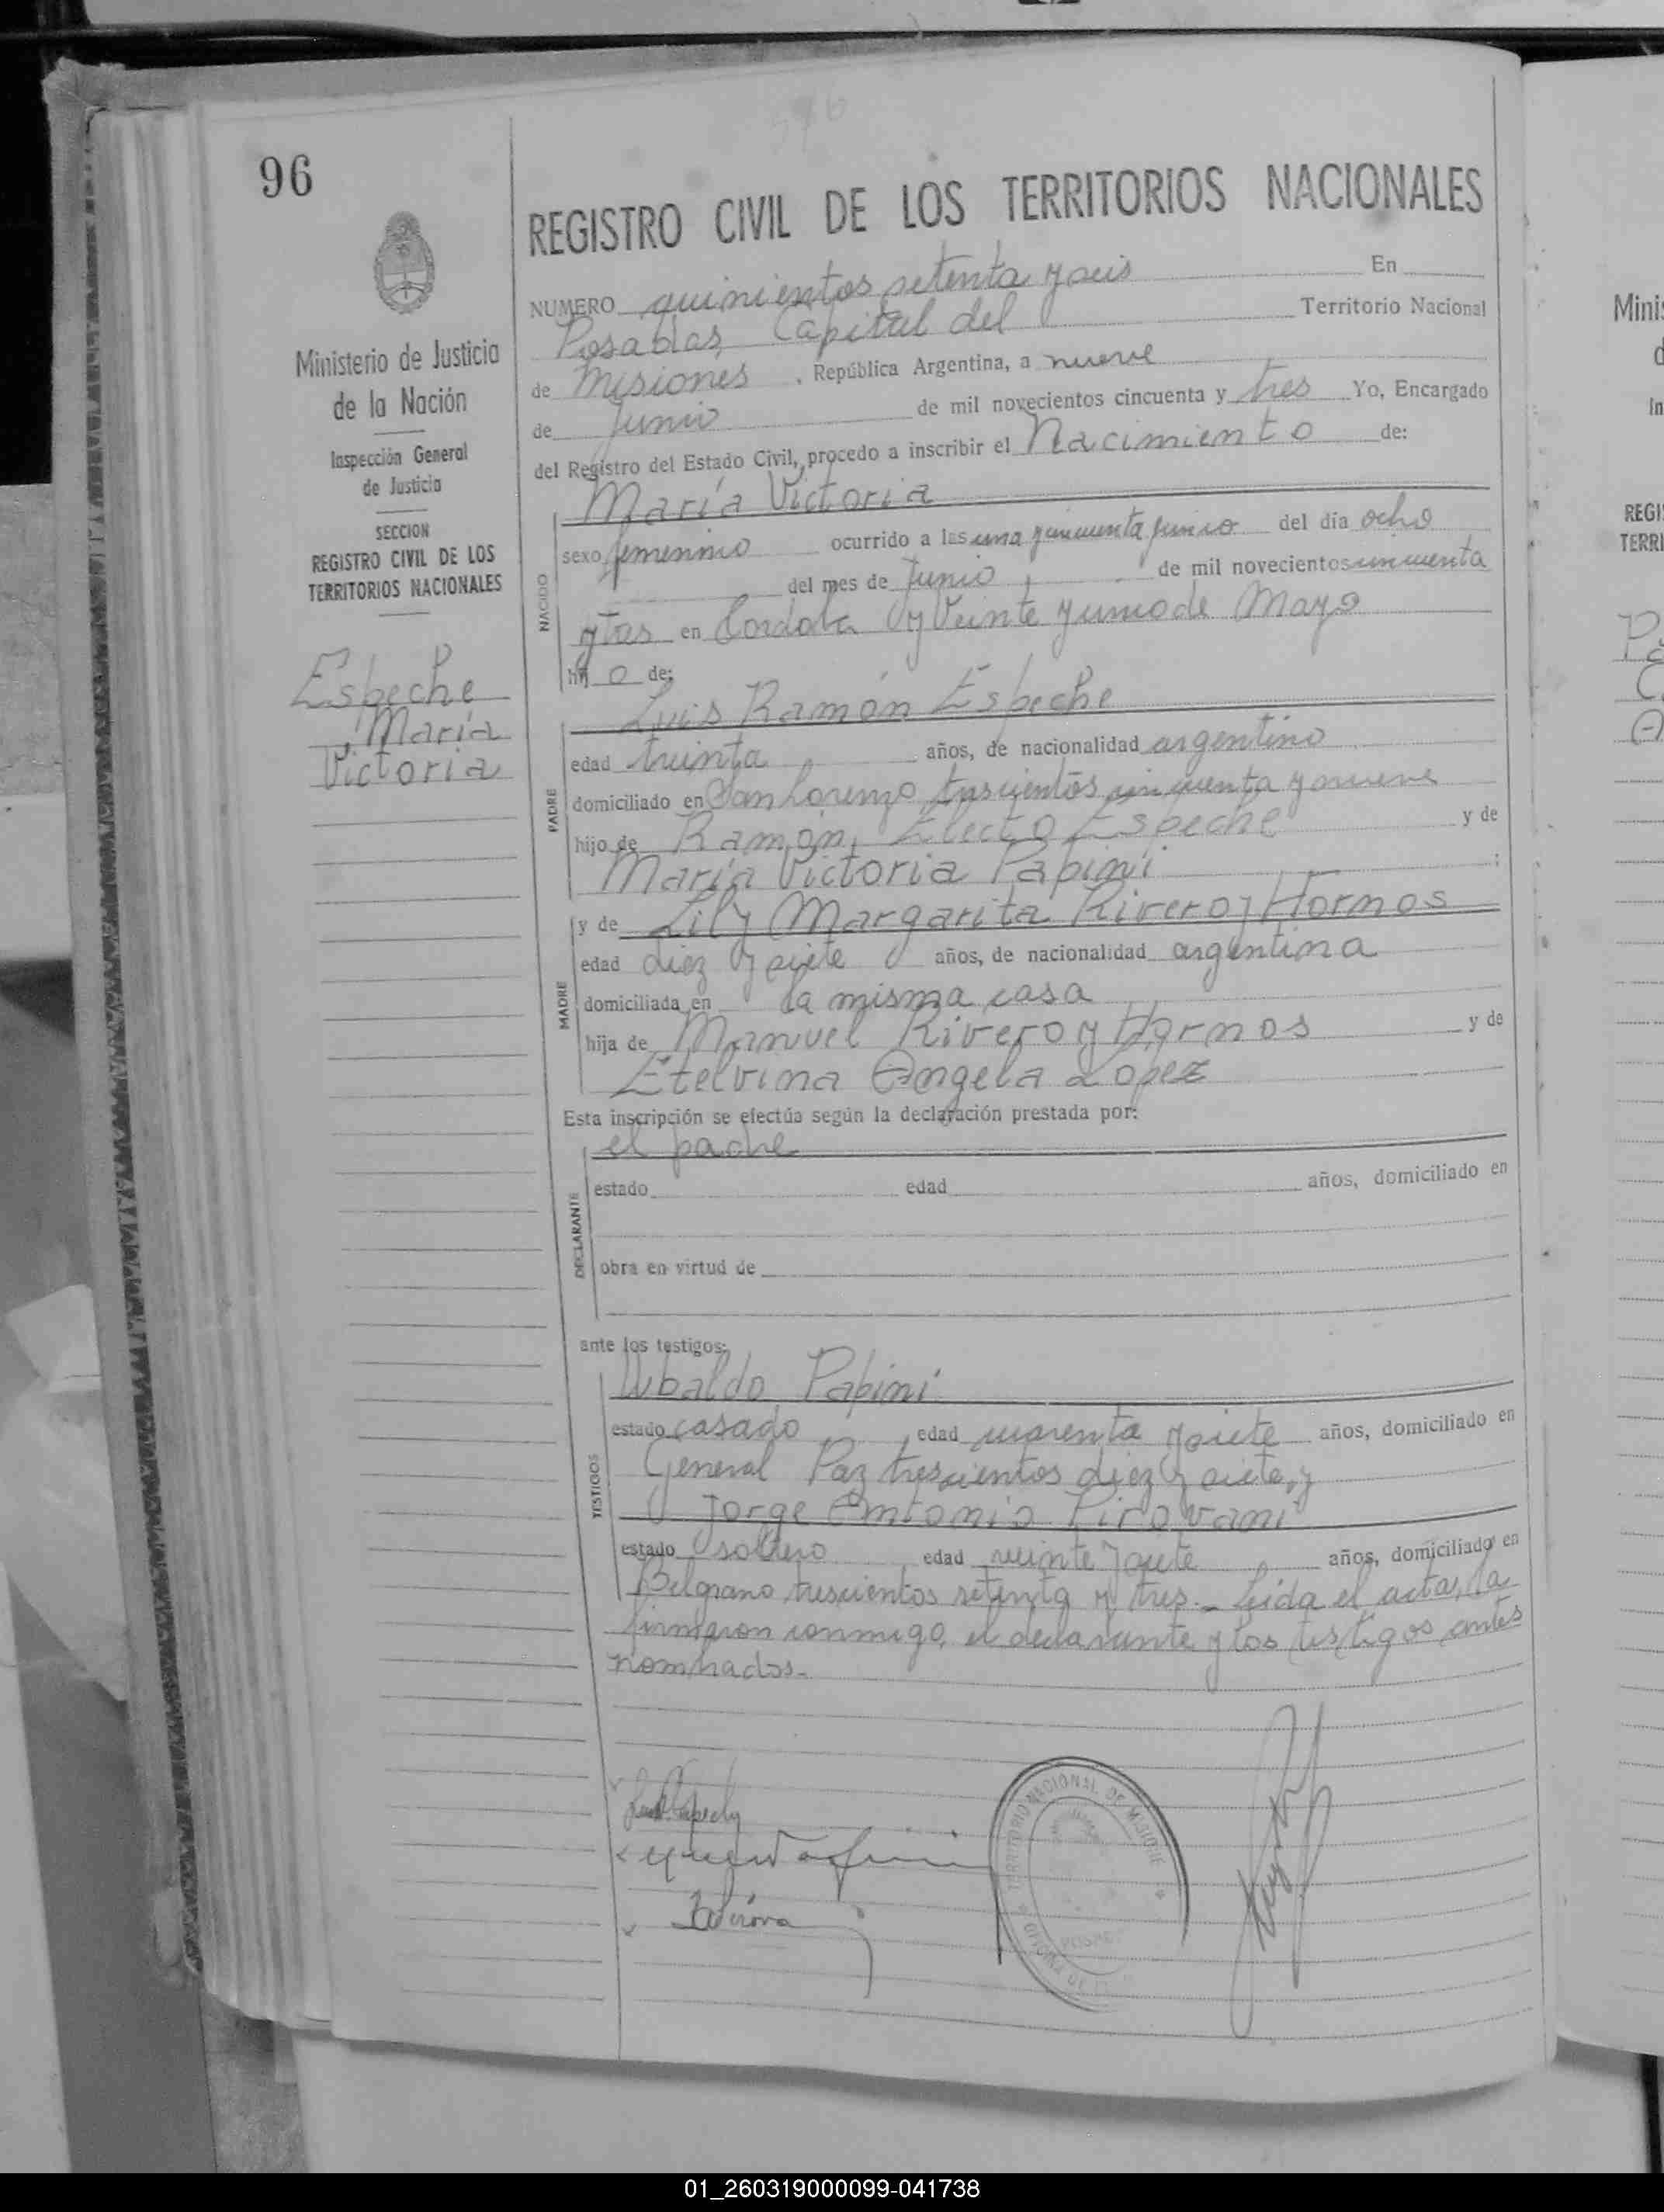 576
96
REGISTRO CIVIL DE LOS TERRITORIOS NACIONALES
NUMERO quinientos setenta y seis En
Posadas, Capital del Territorio Nacional
de Misiones, República Argentina, a nueve
de Junio de mil novecientos cincuenta y tres Yo, Encargado
del Registro del Estado Civil, procedo a inscribir el Nacimiento de:
Ministerio de Justicia
de la Nación
Inspección General
de Justicia
SECCION
REGISTRO CIVIL DE LOS
TERRITORIOS NACIONALES
Espeche
María
Victoria
NACIDO
María Victoria
sexo femenino ocurrido a las una y cincuenta del día ocho
del mes de Junio de mil novecientos cincuenta
y tres en Cordoba y Veinte y uno de Mayo
hij o de:
PADRE
Luis Ramón Espeche
edad treinta años, de nacionalidad argentino
domiciliado en San Lorenzo trescientos cincuenta y nueve
hijo de Ramón Electo Espeche y de
María Victoria Papini;
MADRE
y de Lily Margarita Rivero y Hornos
edad diez y siete años, de nacionalidad argentina
domiciliada en la misma casa
hija de Manuel Rivero y Hornos y de
Etelvina Angela Lopez
Esta inscripción se efectúa según la declaración prestada por:
DECLARANTE
el padre
estado edad años, domiciliado en
obra en virtud de
ante los testigos:
TESTIGOS
Ubaldo Papini
estado casado edad cuarenta y siete años, domiciliado en
General Paz trescientos diez y siete, y
Jorge Antonio Pirovani
estado soltero edad veinte y siete años, domiciliado en
Belgrano trescientos setenta y tres.- Leida el acta, la
firmaron conmigo, el declarante y los testigos antes
nombrados.-
TERRITORIO NACIONAL DE MISIONES
OFICINA DE
POSADAS
Minis
REGI
TERRI
01_260319000099-041738